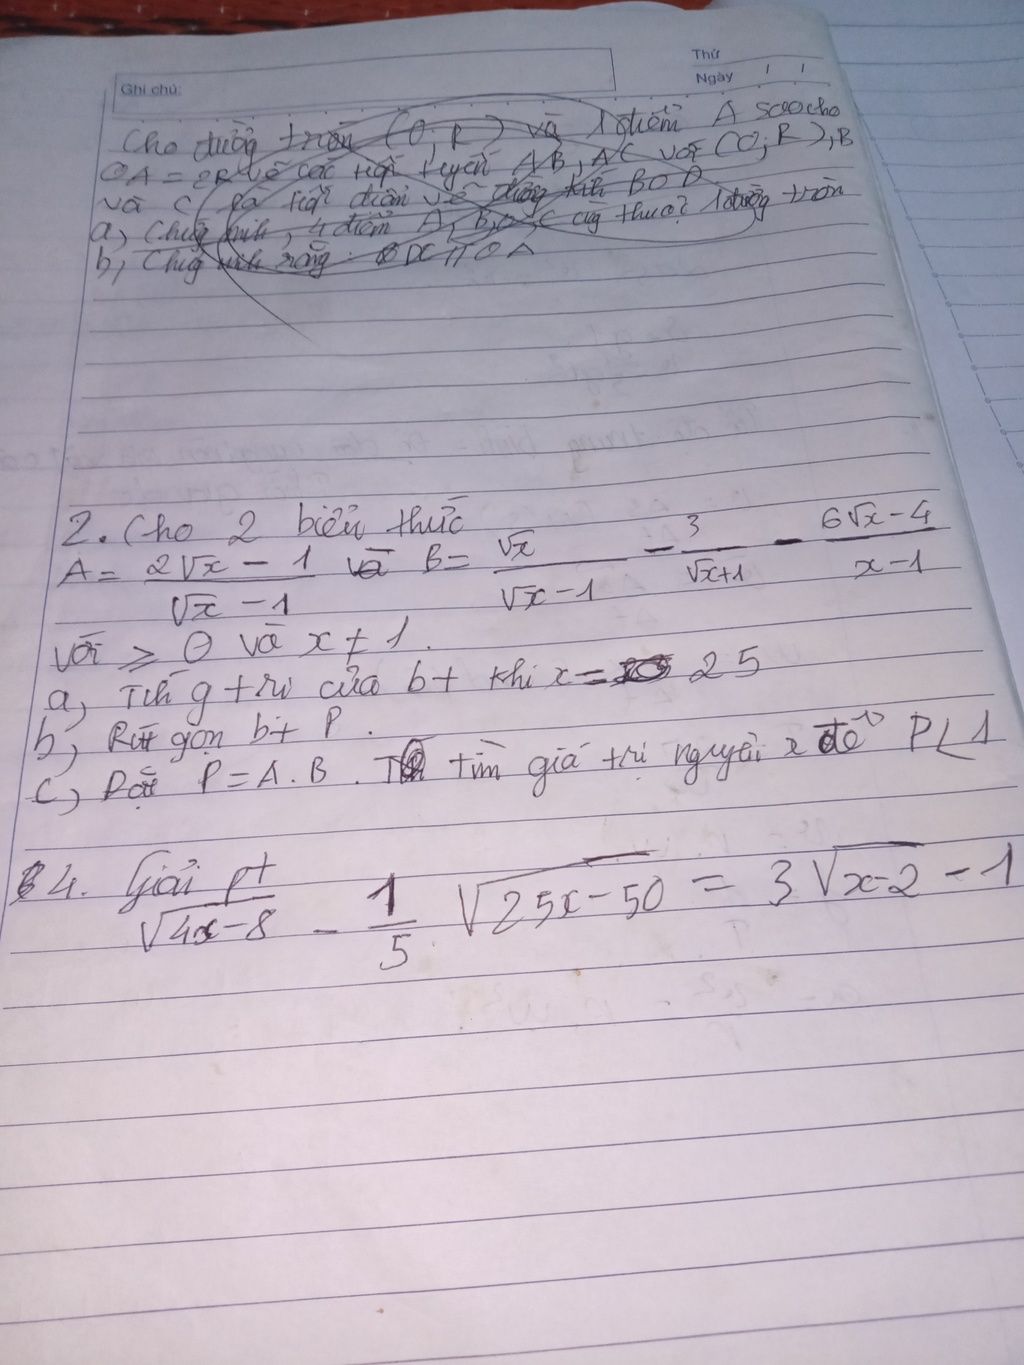 Ghi chú:
Thứ
Ngày / /
Cho đường tròn (O; R) và 1 điểm A sao cho
OA = 2R vẽ các tiếp tuyến AB, AC với (O; R), B
và C là tiếp điểm vẽ đường kính BOD
a, Chứng minh, 4 điểm A, B, O, C cùng thuộc 1 đường tròn
b, Chứng minh rằng: DC // OA
2. Cho 2 biểu thức
A = \frac{2√x - 1}{√x - 1} và B = \frac{√x}{√x - 1} - \frac{3}{√x+1} - \frac{6√x - 4}{x - 1}
với ≥ 0 và x ≠ 1.
a, Tính g trị của bt khi x = 25
b, Rút gọn bt P.
c, Đặt P = A.B. tìm giá trị nguyên x để P < 1
4. Giải pt
√4x-8 - \frac{1}{5} √25x-50 = 3√x-2 - 1